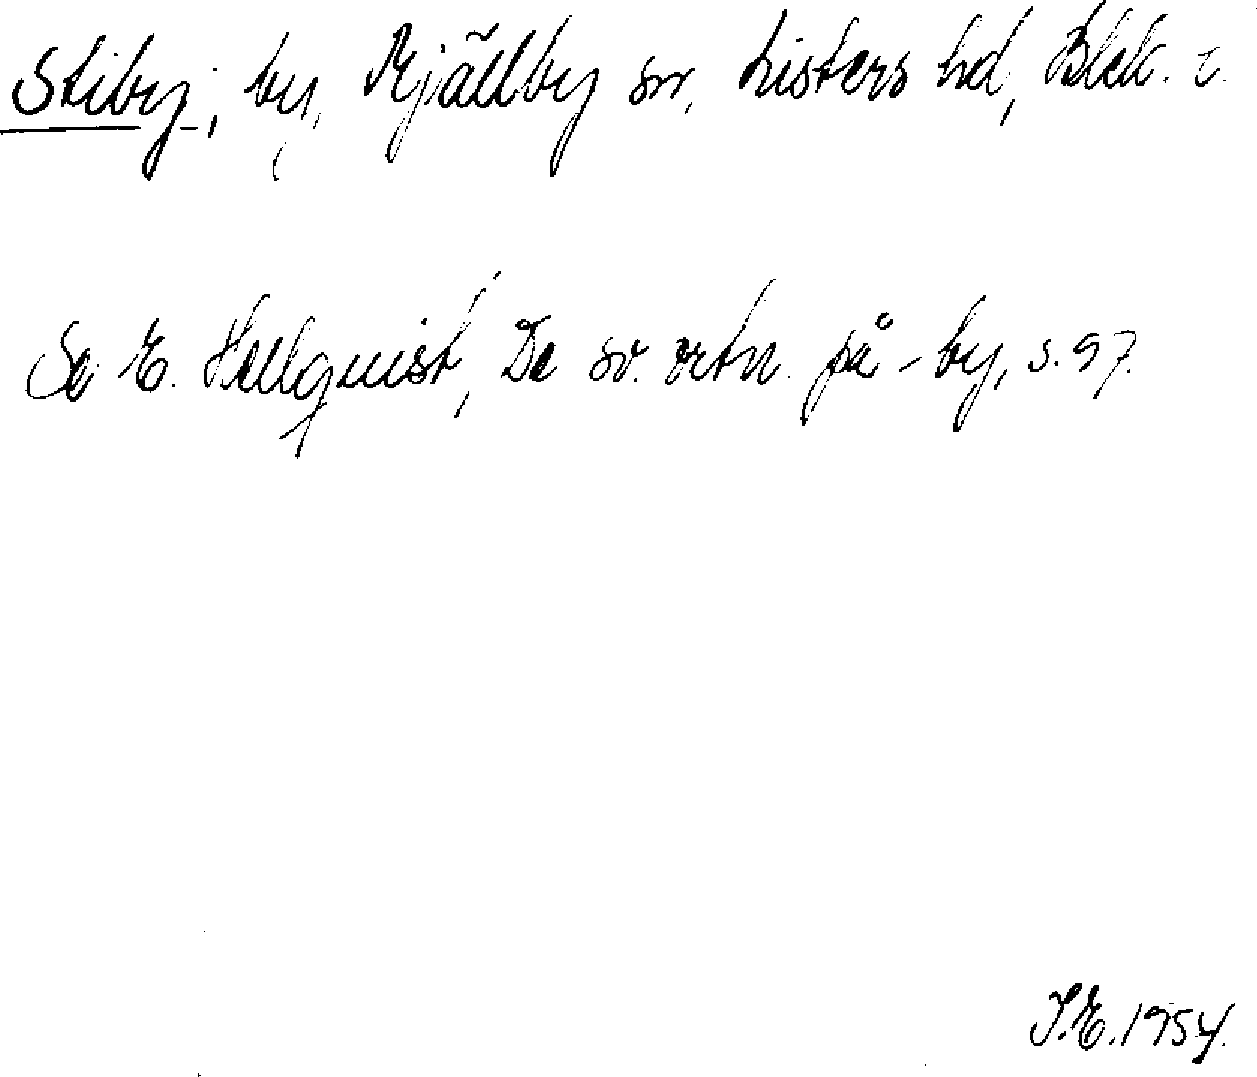 Stiby, by, Mjällby sn, Listers hd, Blek. l.
Se E. Hellquist, De sv. ortn. på -by, s. 97.
I.E. 1954.